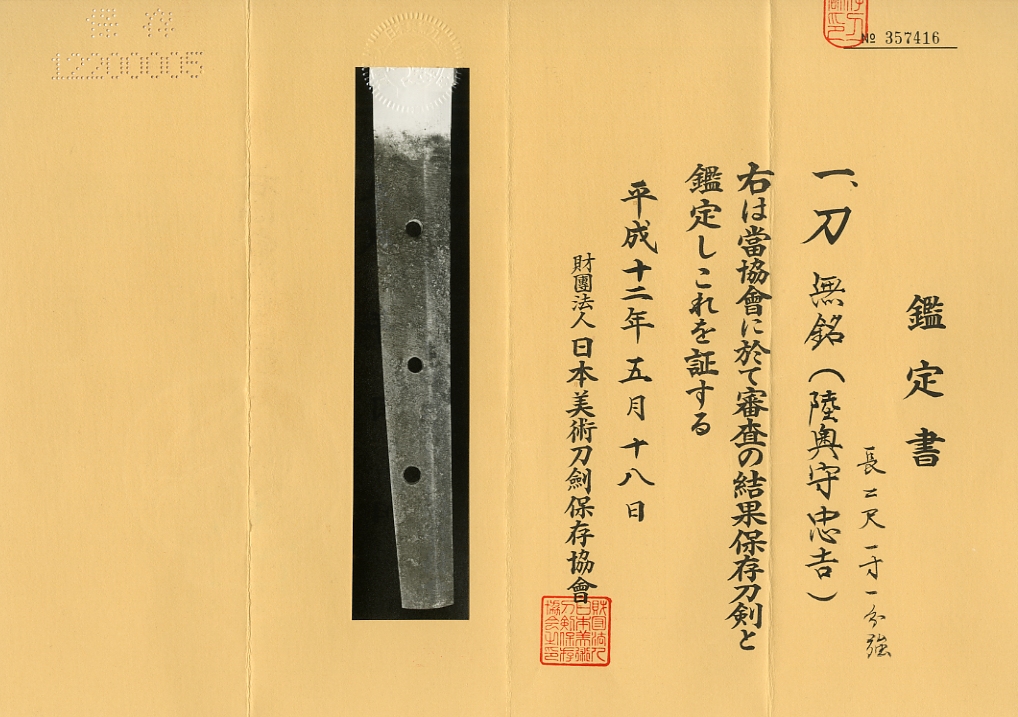 № 357416
鑑定書
一、刀 無銘(陸奥守忠吉)
長二尺一寸一分強
右は當協會に於て審査の結果保存刀剣と
鑑定しこれを証する
平成十二年五月十八日
財團法人日本美術刀劍保存協會
財団法人
日本美術
刀剣保存
協会之印
保存
12200005